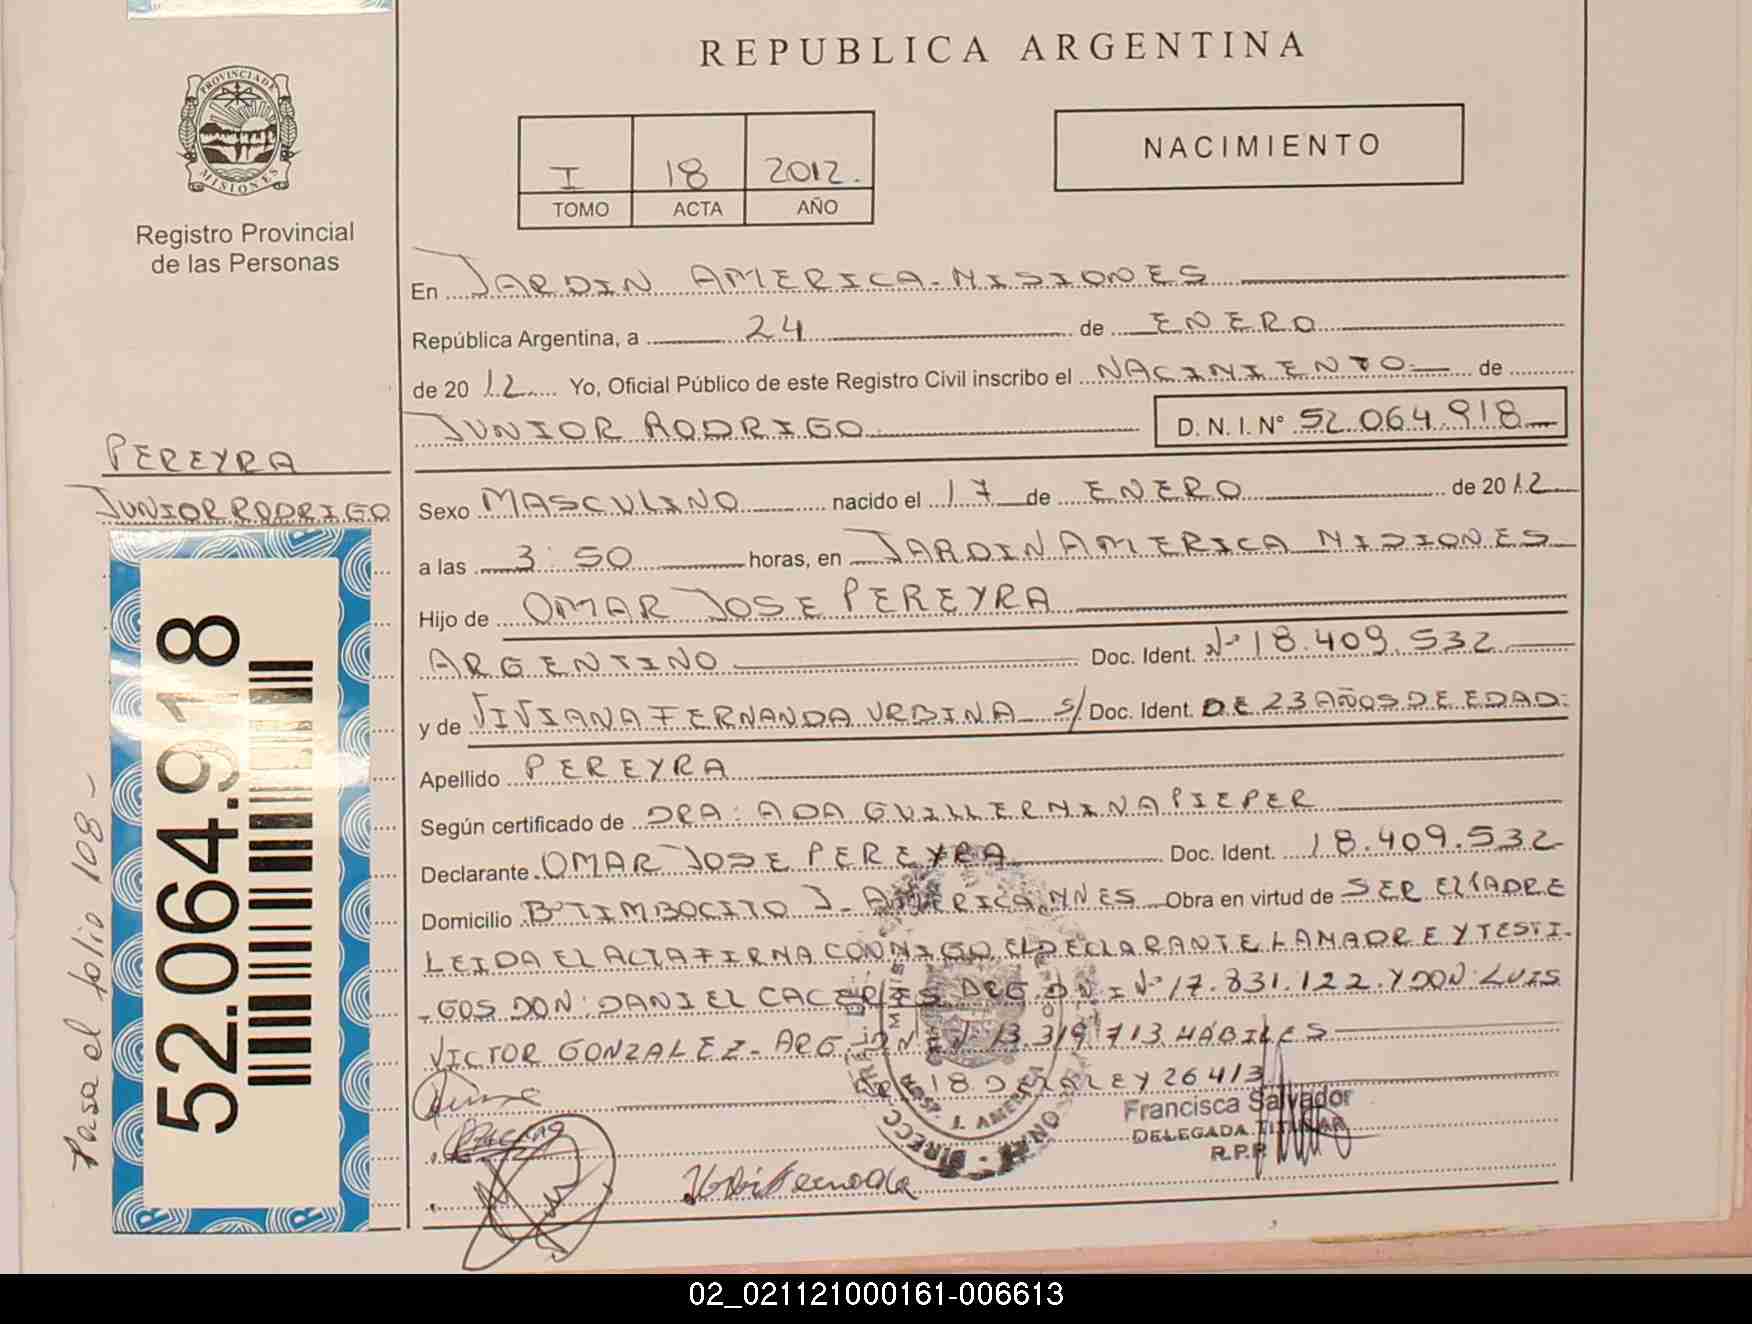 PROVINCIA DE
MISIONES
Registro Provincial
de las Personas
REPUBLICA ARGENTINA
I 18 2012.
TOMO ACTA AÑO
NACIMIENTO
En JARDIN AMERICA-MISIONES
República Argentina, a 24 de ENERO
de 2012 Yo, Oficial Público de este Registro Civil inscribo el NACIMIENTO de
JUNIOR RODRIGO D. N. I. N° 52.064.918
PEREYRA
JUNIOR RODRIGO
Sexo MASCULINO nacido el 17 de ENERO de 2012
a las 3:50 horas, en JARDIN AMERICA MISIONES
Hijo de OMAR JOSE PEREYRA
ARGENTINO Doc. Ident. N° 18.409.532
y de VIVIANA FERNANDA URBINA S/ Doc. Ident. DE 23 AÑOS DE EDAD:
Apellido PEREYRA
Según certificado de DRA: ADA GUILLERMINA PIEPER
Declarante OMAR JOSE PEREYRA Doc. Ident. 18.409.532
Domicilio B° TIMBOCITO J- AMERICA, MNES Obra en virtud de SER EL PADRE
LEIDA EL ACTA FIRMA CONMIGO, EL DECLARANTE LA MADRE Y TESTI-
GOS DON: DANIEL CACERES ARG. DNI N° 17.831.122. Y DON: LUIS
VICTOR GONZALEZ- ARG- DNI N° 13.319.713 HABILES
18 DE LA LEY 26413
Francisca Salvador
DELEGADA TITULAR
R.P.P.
52.064.918
Pasa al folio 108-
02_021121000161-006613